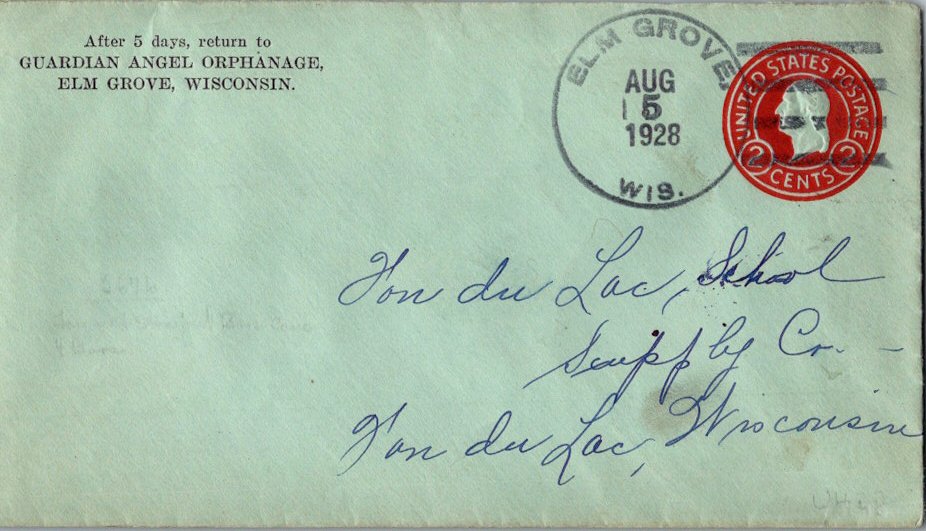 After 5 days, return to
GUARDIAN ANGEL ORPHANAGE,
ELM GROVE, WISCONSIN.
ELM GROVE,
AUG
5
1928
WIS.
UNITED STATES POSTAGE
2 CENTS 2
Fon du Lac, School
Supply Co. –
Fon du Lac, Wisconsin